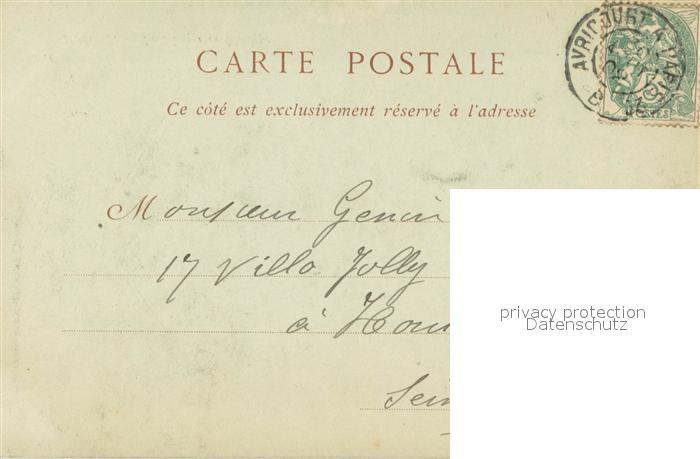 CARTE POSTALE
AVRICOURT A PARIS
POSTES
Ce côté est exclusivement réservé à l'adresse
Monsieur Genin
17 Villa Jolly
à
privacy protection
Datenschutz